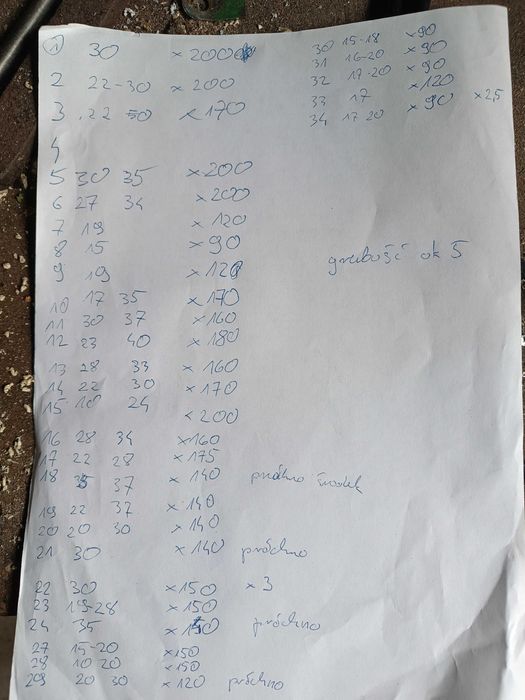 1 30 x 200
2 22-30 x 200
3 .22 50 x 170
4
5 30 35 x 200
6 27 34 x 200
7 19 x 120
8 15 x 90
9 19 x 120
10 17 35 x 170
11 30 37 x 160
12 23 40 x 180
13 28 33 x 160
14 22 30 x 170
15 10 24 x 200
16 28 34 x 160
17 22 28 x 175
18 37 x 140 próchno środek
19 22 37 x 140
20 20 30 x 140
21 30 x 140 próchno
22 30 x 150 x 3
23 15-28 x 150
24 35 x 150 próchno
27 15-20 x 150
28 10 20 x 150
29 20 30 x 120 próchno
30 15-18 x 90
31 16-20 x 90
32 17-20 x 90
33 17 x 120
34 17 20 x 90 x 2,5
grubość ok 5